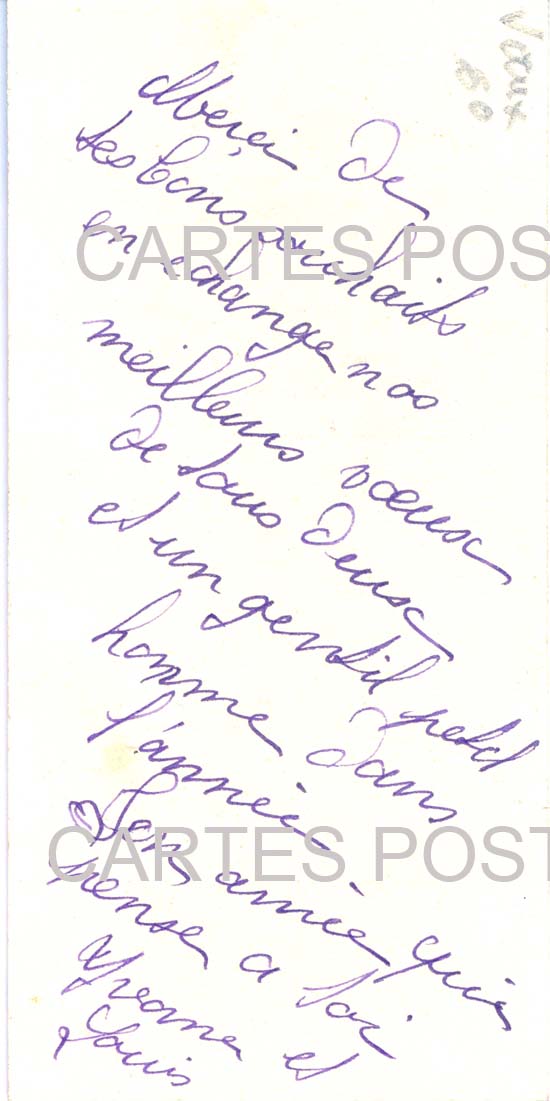 Vœux
60
Merci de
tes bons souhaits
en échange nos
meilleurs vœux
de tous deux
et un gentil petit
homme dans
l'année.
Ton amie qui
pense a toi et
Yvonne
Louis
CARTES POST
CARTES POST